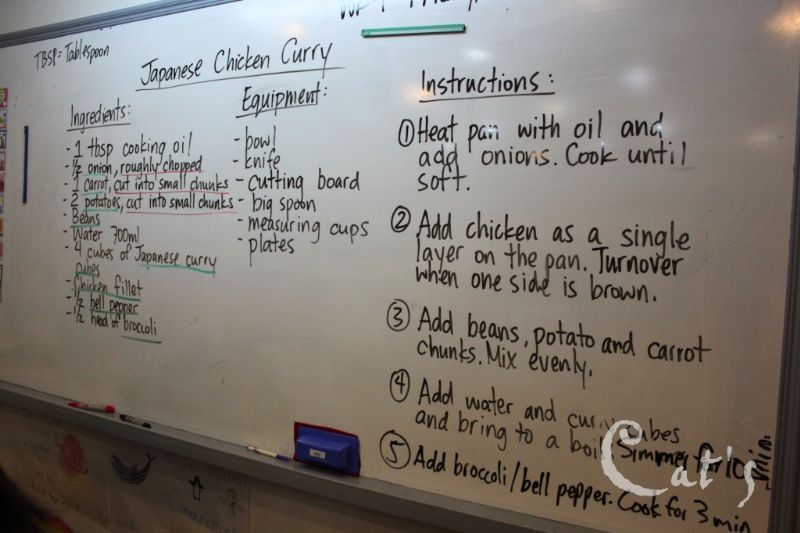 TBSP = Tablespoon
Japanese Chicken Curry
Ingredients:
- 1 tbsp cooking oil
- 1/2 onion, roughly chopped
- 1 carrot, cut into small chunks
- 2 potatoes, cut into small chunks
- Beans
- Water 700ml
- 4 cubes of Japanese curry
cubes
- Chicken fillet
- 1/2 bell pepper
- 1/2 head of broccoli
Equipment:
- bowl
- knife
- cutting board
- big spoon
- measuring cups
- plates
Instructions:
① Heat pan with oil and
add onions. Cook until
soft.
② Add chicken as a single
layer on the pan. Turnover
when one side is brown.
③ Add beans, potato and carrot
chunks. Mix evenly.
④ Add water and curry cubes
and bring to a boil. Simmer for 10
min.
⑤ Add broccoli/bell pepper. Cook for 3 min
Cat's